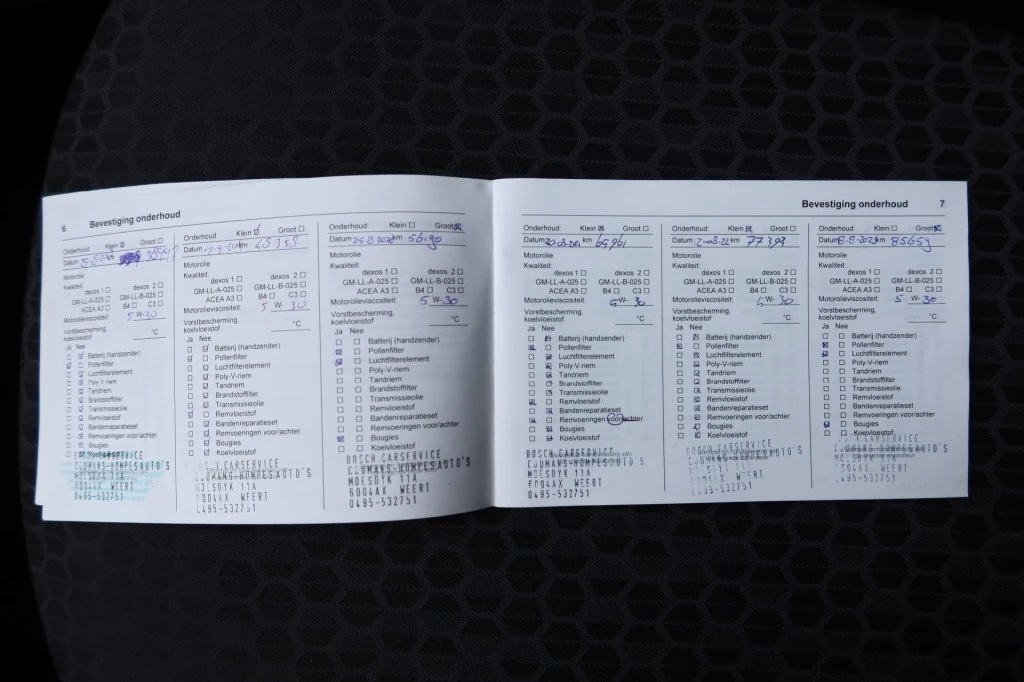 6 Bevestiging onderhoud
Onderhoud: Klein Groot
Datum km
Motorolie
Kwaliteit:
dexos 1 dexos 2
GM-LL-A-025 GM-LL-B-025
ACEA A3 B4 C3
Motorolieviscositeit: 5 W-30
Vorstbescherming, koelvloeistof °C
Ja Nee
Batterij (handzender)
Pollenfilter
Luchtfilterelement
Poly-V-riem
Tandriem
Brandstoffilter
Transmissieolie
Remvloeistof
Bandenreparatieset
Remvoeringen voor/achter
Bougies
Koelvloeistof
BOSCH CARSERVICE
COUMANS-HOMPESAUTO'S
MOESDYK 11A
6004AX WEERT
0495-532751
Onderhoud: Klein Groot
Datum km
Motorolie
Kwaliteit:
dexos 1 dexos 2
GM-LL-A-025 GM-LL-B-025
ACEA A3 B4 C3
Motorolieviscositeit: 5 W-30
Vorstbescherming,
koelvloeistof °C
Ja Nee
Batterij (handzender)
Pollenfilter
Luchtfilterelement
Poly-V-riem
Tandriem
Brandstoffilter
Transmissieolie
Remvloeistof
Bandenreparatieset
Remvoeringen voor/achter
Bougies
Koelvloeistof
BOSCH CARSERVICE
COUMANS-HOMPESAUTO'S
MOESDYK 11A
6004AX WEERT
0495-532751
Onderhoud: Klein Groot
Datum km 56190
Motorolie
Kwaliteit:
dexos 1 dexos 2
GM-LL-A-025 GM-LL-B-025
ACEA A3 B4 C3
Motorolieviscositeit: 5 W-30
Vorstbescherming,
koelvloeistof °C
Ja Nee
Batterij (handzender)
Pollenfilter
Luchtfilterelement
Poly-V-riem
Tandriem
Brandstoffilter
Transmissieolie
Remvloeistof
Bandenreparatieset
Remvoeringen voor/achter
Bougies
Koelvloeistof
BOSCH CARSERVICE
COUMANS-HOMPESAUTO'S
MOESDYK 11A
6004AX WEERT
0495-532751
Bevestiging onderhoud 7
Onderhoud: Klein Groot
Datum km 65961
Motorolie
Kwaliteit:
dexos 1 dexos 2
GM-LL-A-025 GM-LL-B-025
ACEA A3 B4 C3
Motorolieviscositeit: 5 W-30
Vorstbescherming
koelvloeistof °C
Ja Nee
Batterij (handzender)
Pollenfilter
Luchtfilterelement
Poly-V-riem
Tandriem
Brandstoffilter
Transmissieolie
Remvloeistof
Bandenreparatieset
Remvoeringen voor/achter
Bougies
Koelvloeistof
BOSCH CARSERVICE
COUMANS-HOMPESAUTO'S
MOESDYK 11A
6004AX WEERT
0495-532751
Onderhoud: Klein Groot
Datum km
Motorolie
Kwaliteit:
dexos 1 dexos 2
GM-LL-A-025 GM-LL-B-025
ACEA A3 B4 C3
Motorolieviscositeit: 5 W-30
Vorstbescherming,
koelvloeistof °C
Ja Nee
Batterij (handzender)
Pollenfilter
Luchtfilterelement
Poly-V-riem
Tandriem
Brandstoffilter
Transmissieolie
Remvloeistof
Bandenreparatieset
Remvoeringen voor/achter
Bougies
Koelvloeistof
Onderhoud: Klein Groot
Datum 8-8-2023 km 85659
Motorolie
Kwaliteit:
dexos 1 dexos 2
GM-LL-A-025 GM-LL-B-025
ACEA A3 B4 C3
Motorolieviscositeit: 5 W-30
Vorstbescherming,
koelvloeistof °C
Ja Nee
Batterij (handzender)
Pollenfilter
Luchtfilterelement
Poly-V-riem
Tandriem
Brandstoffilter
Transmissieolie
Remvloeistof
Bandenreparatieset
Remvoeringen voor/achter
Bougies
Koelvloeistof